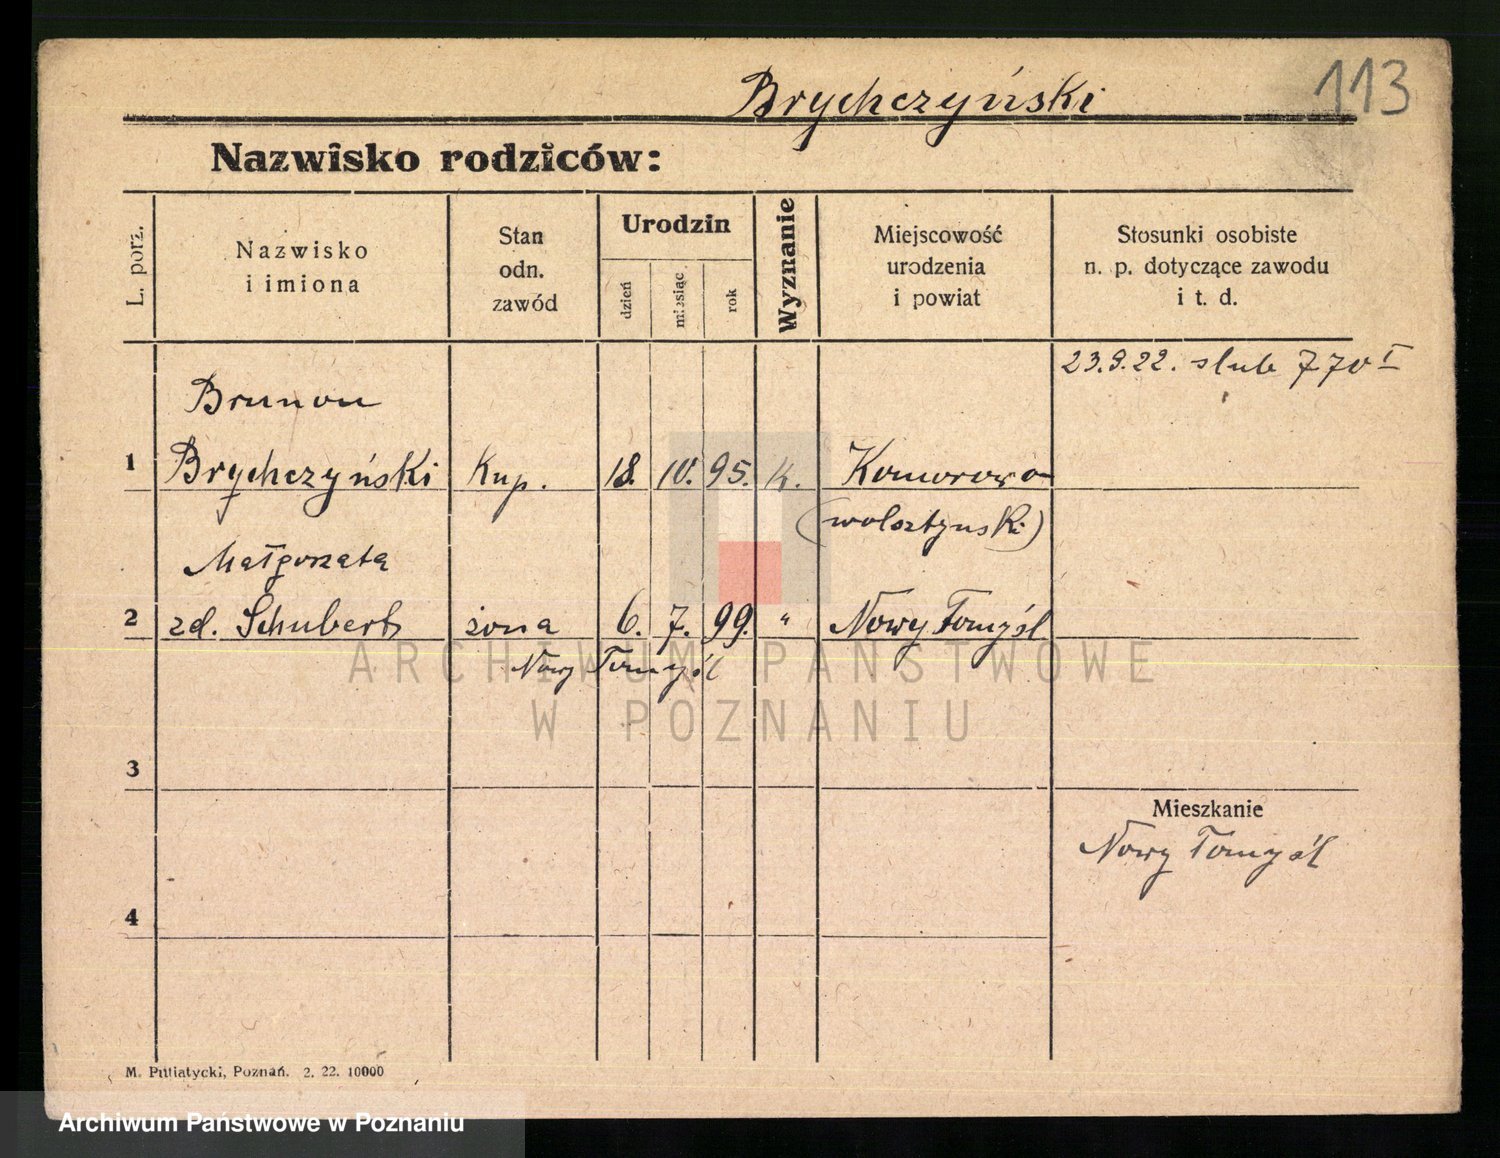 113
Brychczyński
Nazwisko rodziców:
L. porz.
Nazwisko
i imiona
Stan
odn.
zawód
Urodzin
dzień
miesiąc
rok
Wyznanie
Miejscowość
urodzenia
i powiat
Stosunki osobiste
n. p. dotyczące zawodu
i t. d.
23.9.22. slub 770 I
Brunon
1 Brychczyński Kup. 18. 10. 95. k. Komorowo
(wolsztynski)
Małgorzata
2 zd. Schubert żona 6. 7. 99. " Nowy Tomyśl
Nowy Tomyśl
ARCHIWUM PAŃSTWOWE
W POZNANIU
3
Mieszkanie
Nowy Tomyśl
4
M. Putiatycki, Poznań. 2. 22. 10000
Archiwum Państwowe w Poznaniu